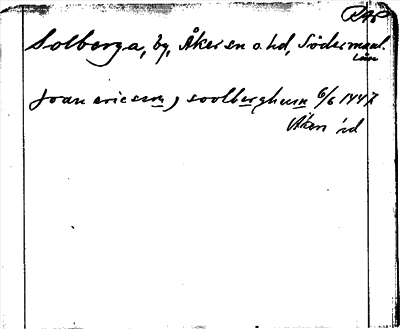 RAP
Solberga, by, Åker sn o. hd, Södermanl.
län
joan ericsson j soolberghum 6/6 1447
Åkers hd